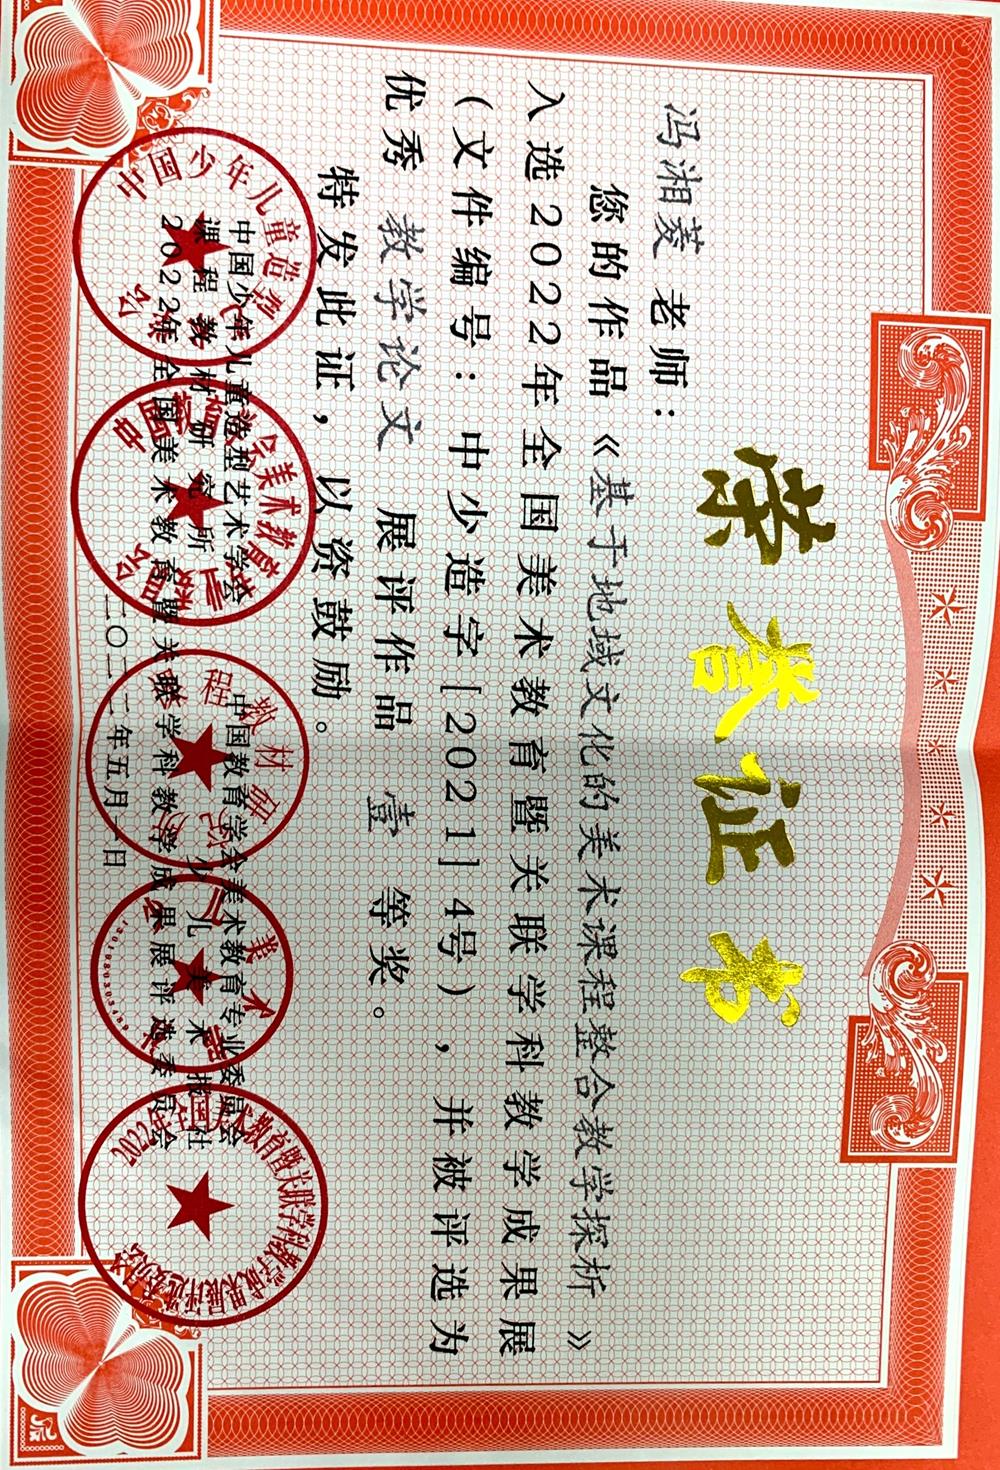 荣誉证书
冯湘菱 老师：
您的作品《基于地域文化的美术课程整合教学探析》
入选2022年全国美术教育暨关联学科教学成果展
（文件编号：中少造字[2021]4号），并被评选为
优秀 教学论文 展评作品 壹 等奖。
特发此证，以资鼓励。
中国少年儿童造型艺术学会 中国教育学会美术教育专业委员会
课程教材研究所 少儿美术报社
2022年全国美术教育暨关联学科教学成果展评选委员会
二〇二二年五月一日
2022年全国美术教育暨关联学科教学成果展评选委员会